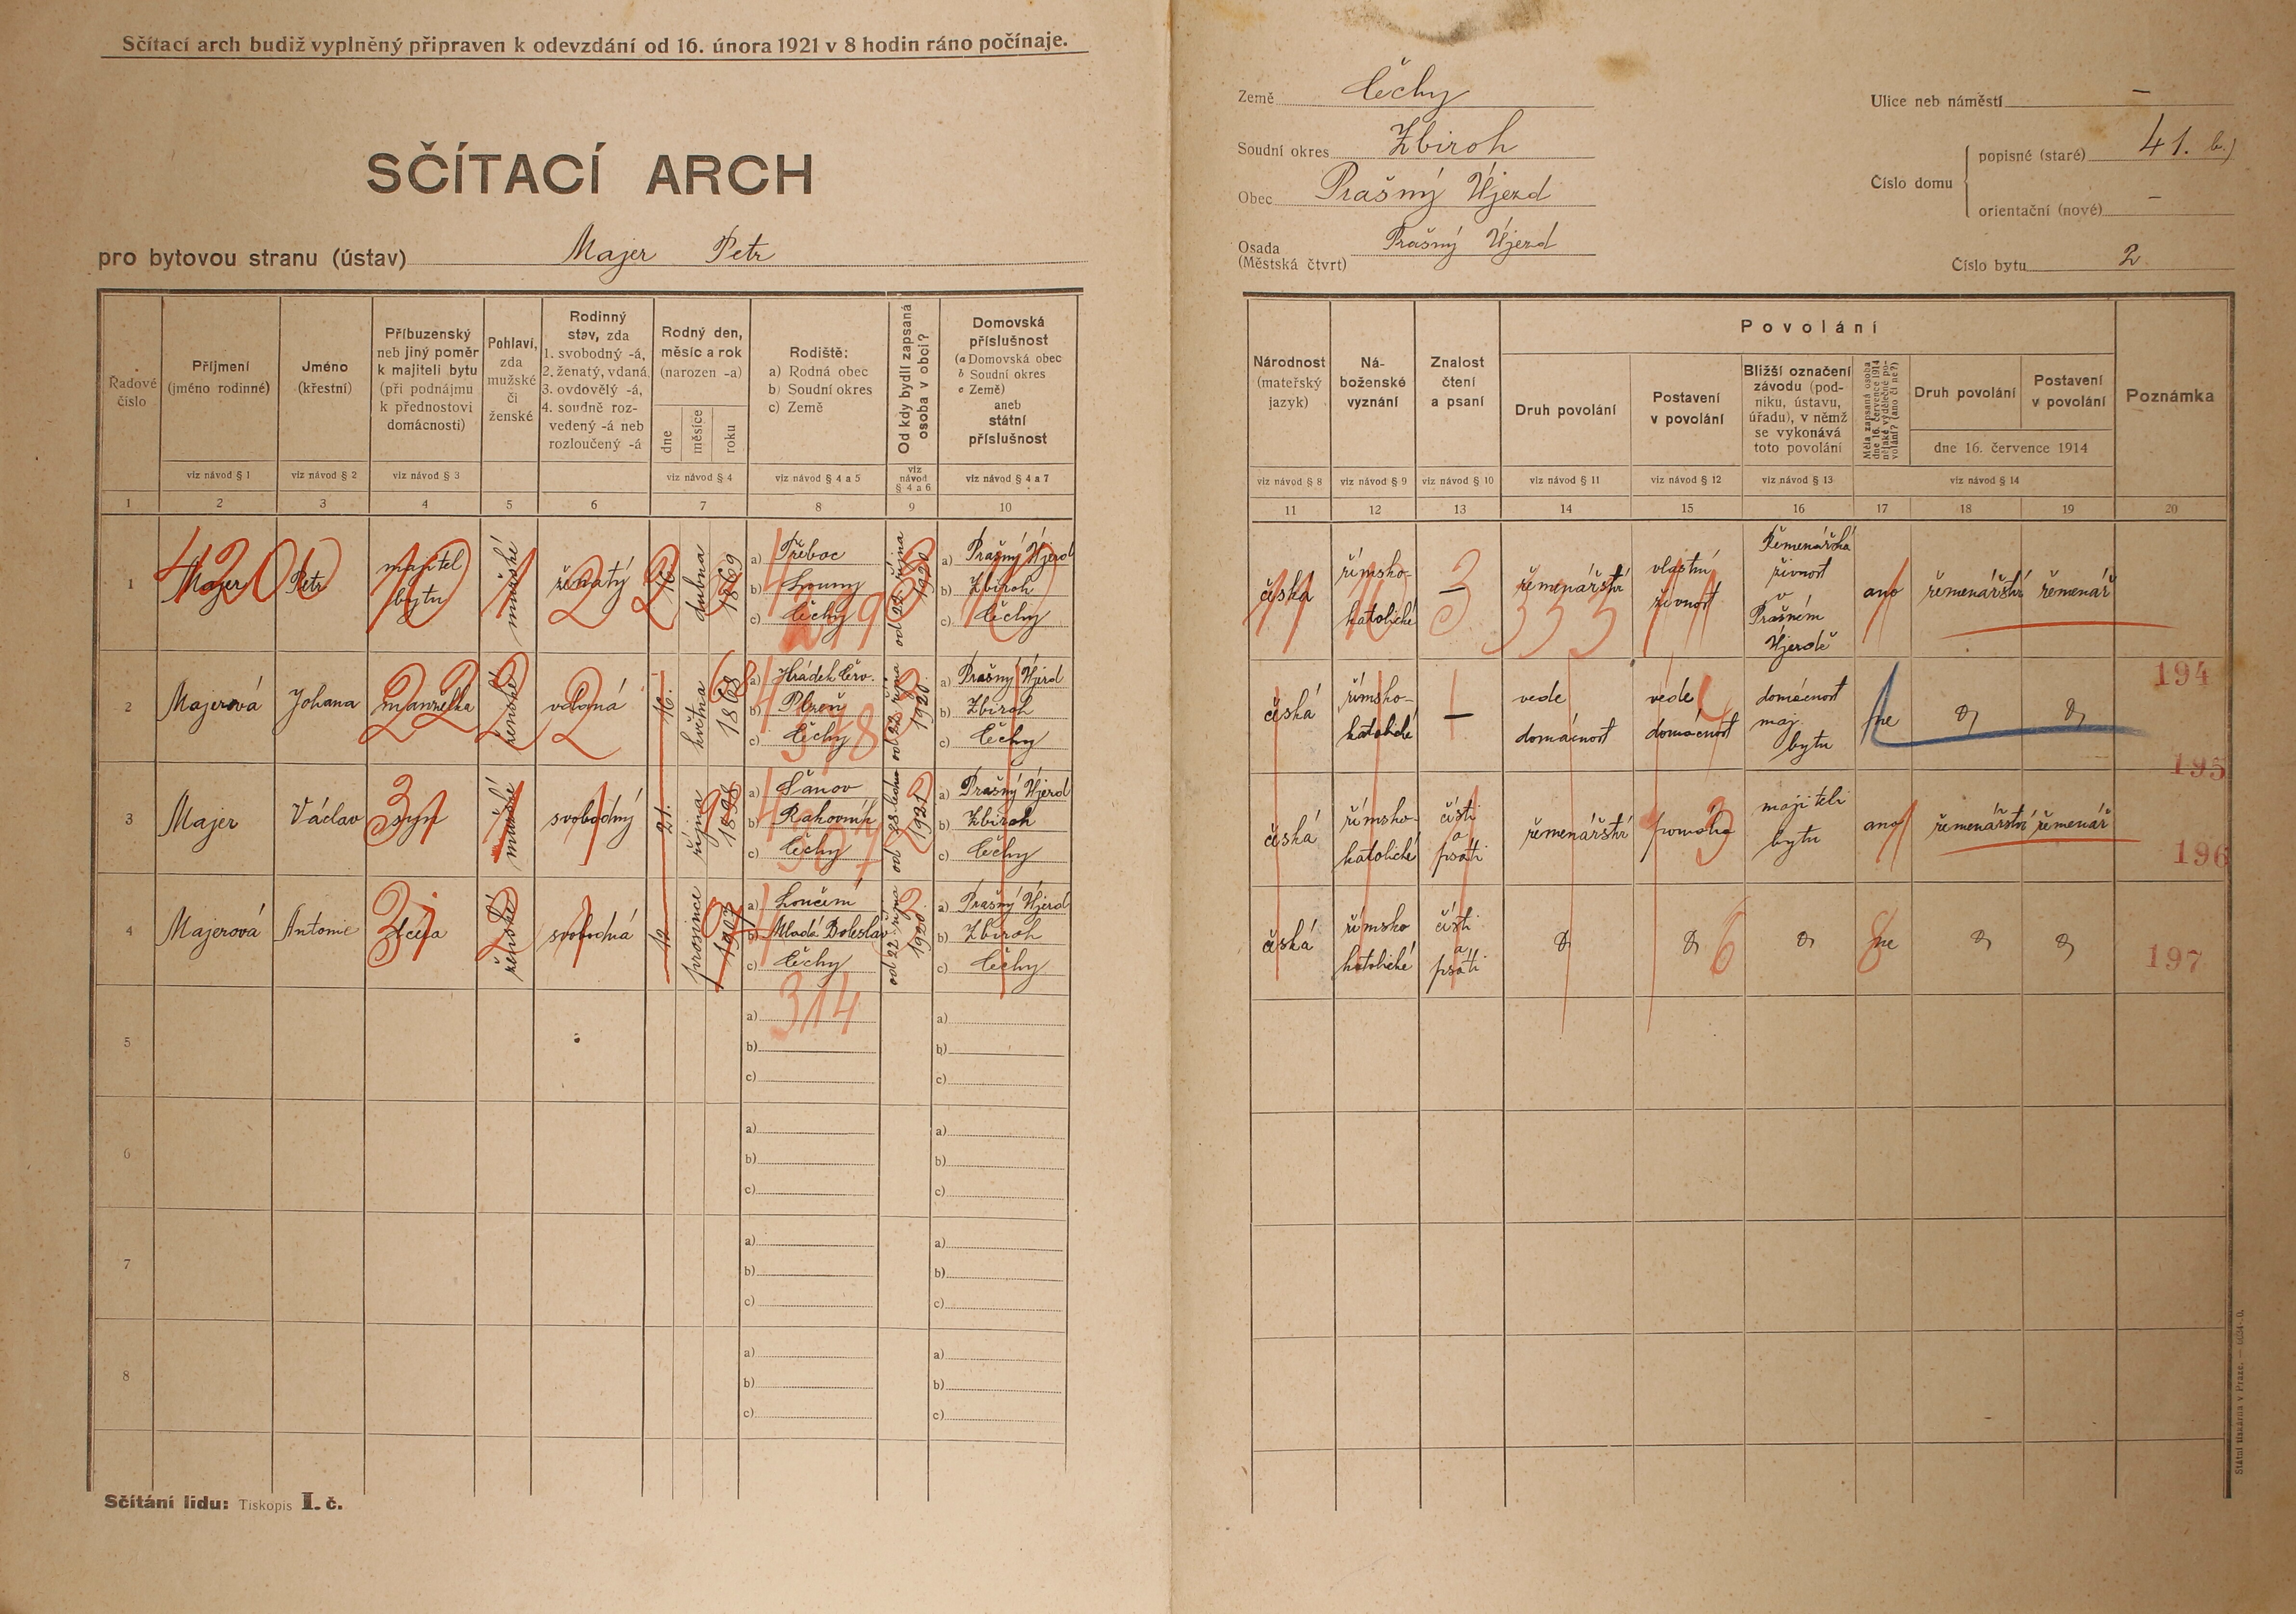 Sčítací arch budiž vyplněný připraven k odevzdání od 16. února 1921 v 8 hodin ráno počínaje.
SČÍTACÍ ARCH
pro bytovou stranu (ústav) Majer Petr
Země Čechy
Soudní okres Zbiroh
Obec Prašný Újezd
Osada Prašný Újezd
(Městská čtvrt)
Ulice neb náměstí –
Číslo domu
popisné (staré) 41. b.)
orientační (nové) –
Číslo bytu 2
Řadové číslo
Příjmení (jméno rodinné)
Jméno (křestní)
Příbuzenský neb jiný poměr k majiteli bytu (při podnájmu k přednostovi domácnosti)
Pohlaví, zda mužské či ženské
Rodinný stav, zda
1. svobodný -á,
2. ženatý, vdaná,
3. ovdovělý -á,
4. soudně roz-
vedený -á neb
rozloučený -á
Rodný den, měsíc a rok (narozen -a)
dne měsíce roku
Rodiště:
a) Rodná obec
b) Soudní okres
c) Země
Od kdy bydlí zapsaná osoba v obci?
Domovská příslušnost
(a Domovská obec
b Soudní okres
c Země)
aneb
státní příslušnost
viz návod § 1 viz návod § 2 viz návod § 3 viz návod § 4 viz návod § 4 a 5 viz návod § 4 a 6 viz návod § 4 a 7
1 2 3 4 5 6 7 8 9 10
Národnost (mateřský jazyk)
Ná-
boženské
vyznání
Znalost čtení a psaní
Povolání
Druh povolání
Postavení v povolání
Bližší označení
závodu (pod-
niku, ústavu,
úřadu), v němž
se vykonává
toto povolání
Měla zapsaná osoba
dne 16. července 1914
nějaké výdělečné po-
volání? (ano či ne?)
Druh povolání
Postavení v povolání
dne 16. července 1914
Poznámka
viz návod § 8 viz návod § 9 viz návod § 10 viz návod § 11 viz návod § 12 viz návod § 13 viz návod § 14
11 12 13 14 15 16 17 18 19 20
1 Majer Petr majitel bytu mužské ženatý 16. dubna 1869
a) Třeboc
b) Louny
c) Čechy
od 22 října 1920
a) Prašný Újezd
b) Zbiroh
c) Čechy
česká římsko-katolické – řemenářství vlastní živnost Řemenářská živnost v Prašném Újezdě ano řemenářství řemenář
2 Majerová Johana manželka ženské vdaná 16. května 1868
a) Hrádek Červ.
b) Plzeň
c) Čechy
od 22 října 1920
a) Prašný Újezd
b) Zbiroh
c) Čechy
česká římsko-katolické – vede domácnost vede domácnost domácnost maj. bytu ne
194
3 Majer Václav syn mužské svobodný 21. října 1898
a) Šanov
b) Rakovník
c) Čechy
od 28 ledna 1921
a) Prašný Újezd
b) Zbiroh
c) Čechy
česká římsko-katolické čísti a psáti řemenářství pomáhá majiteli bytu ano řemenářství řemenář
195
196
4 Majerová Antonie dcera ženské svobodná 12. prosince 1907
a) Loučeni
b) Mladá Boleslav
c) Čechy
od 22 října 1920
a) Prašný Újezd
b) Zbiroh
c) Čechy
česká římsko katolické čísti a psáti ne
197
314
5
a)
b)
c)
a)
b)
c)
6
a)
b)
c)
a)
b)
c)
7
a)
b)
c)
a)
b)
c)
8
a)
b)
c)
a)
b)
c)
Sčítání lidu: Tiskopis I. č.